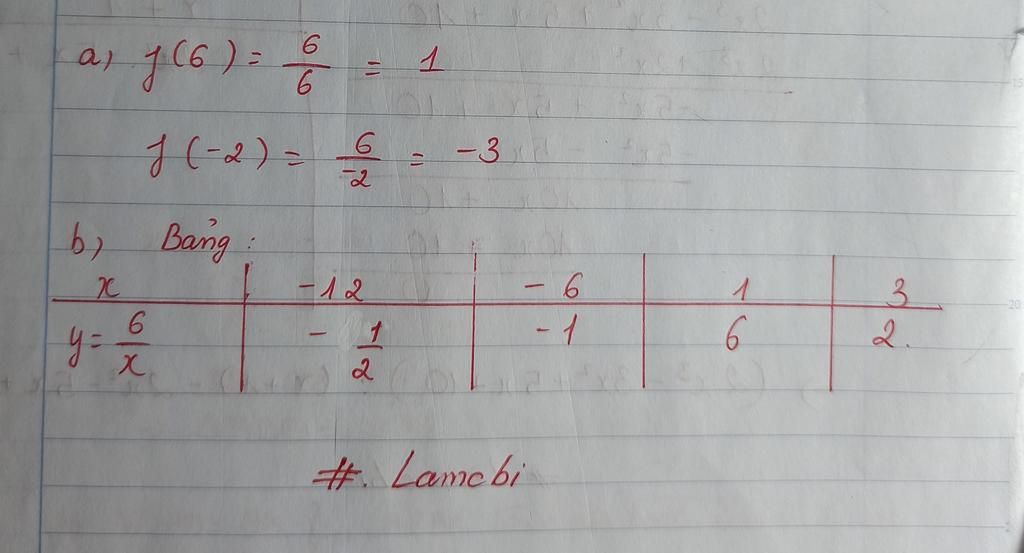 a, f(6) = 6/6 = 1
f(-2) = 6/-2 = -3
b, Bảng :
x | -12 | -6 | 1 | 3
y = 6/x | - 1/2 | -1 | 6 | 2.
#. Lamcbi